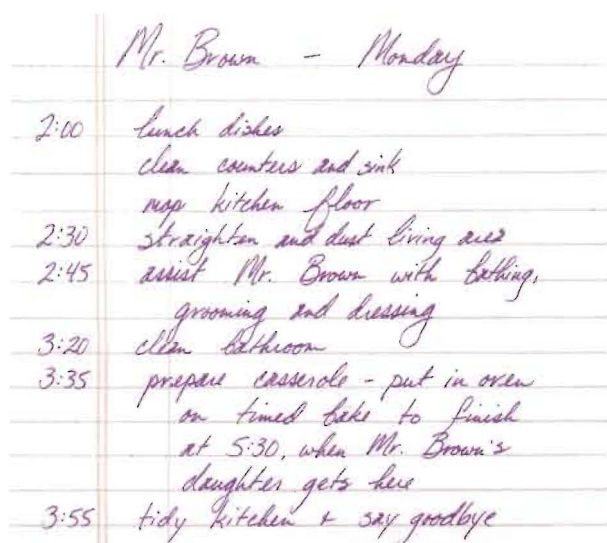 Mr. Brown - Monday
2:00 lunch dishes
clean counters and sink
mop kitchen floor
2:30 straighten and dust living area
2:45 assist Mr. Brown with bathing,
grooming and dressing
3:20 clean bathroom
3:35 prepare casserole - put in oven
on timed bake to finish
at 5:30, when Mr. Brown's
daughter gets here
3:55 tidy kitchen + say goodbye